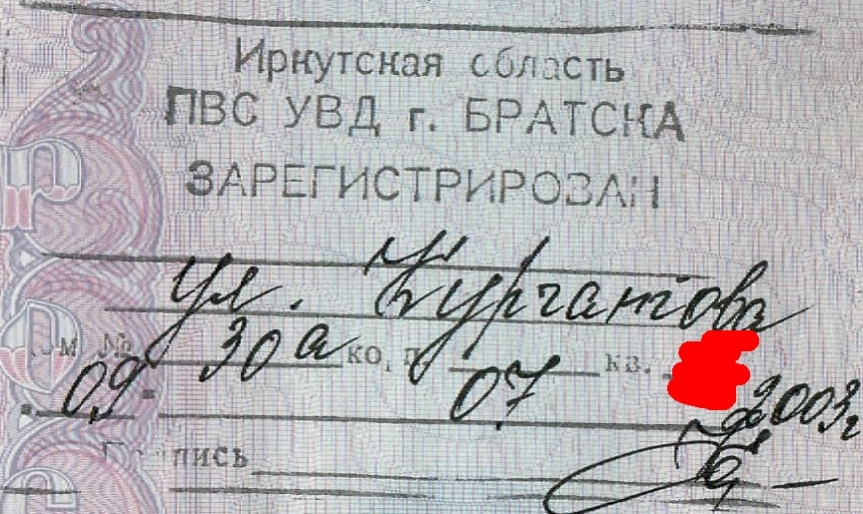 Иркутская область
ПВС УВД г. БРАТСКА
ЗАРЕГИСТРИРОВАН
ул. Курчатова
№ 30а кв.
09 07 2003г
пись